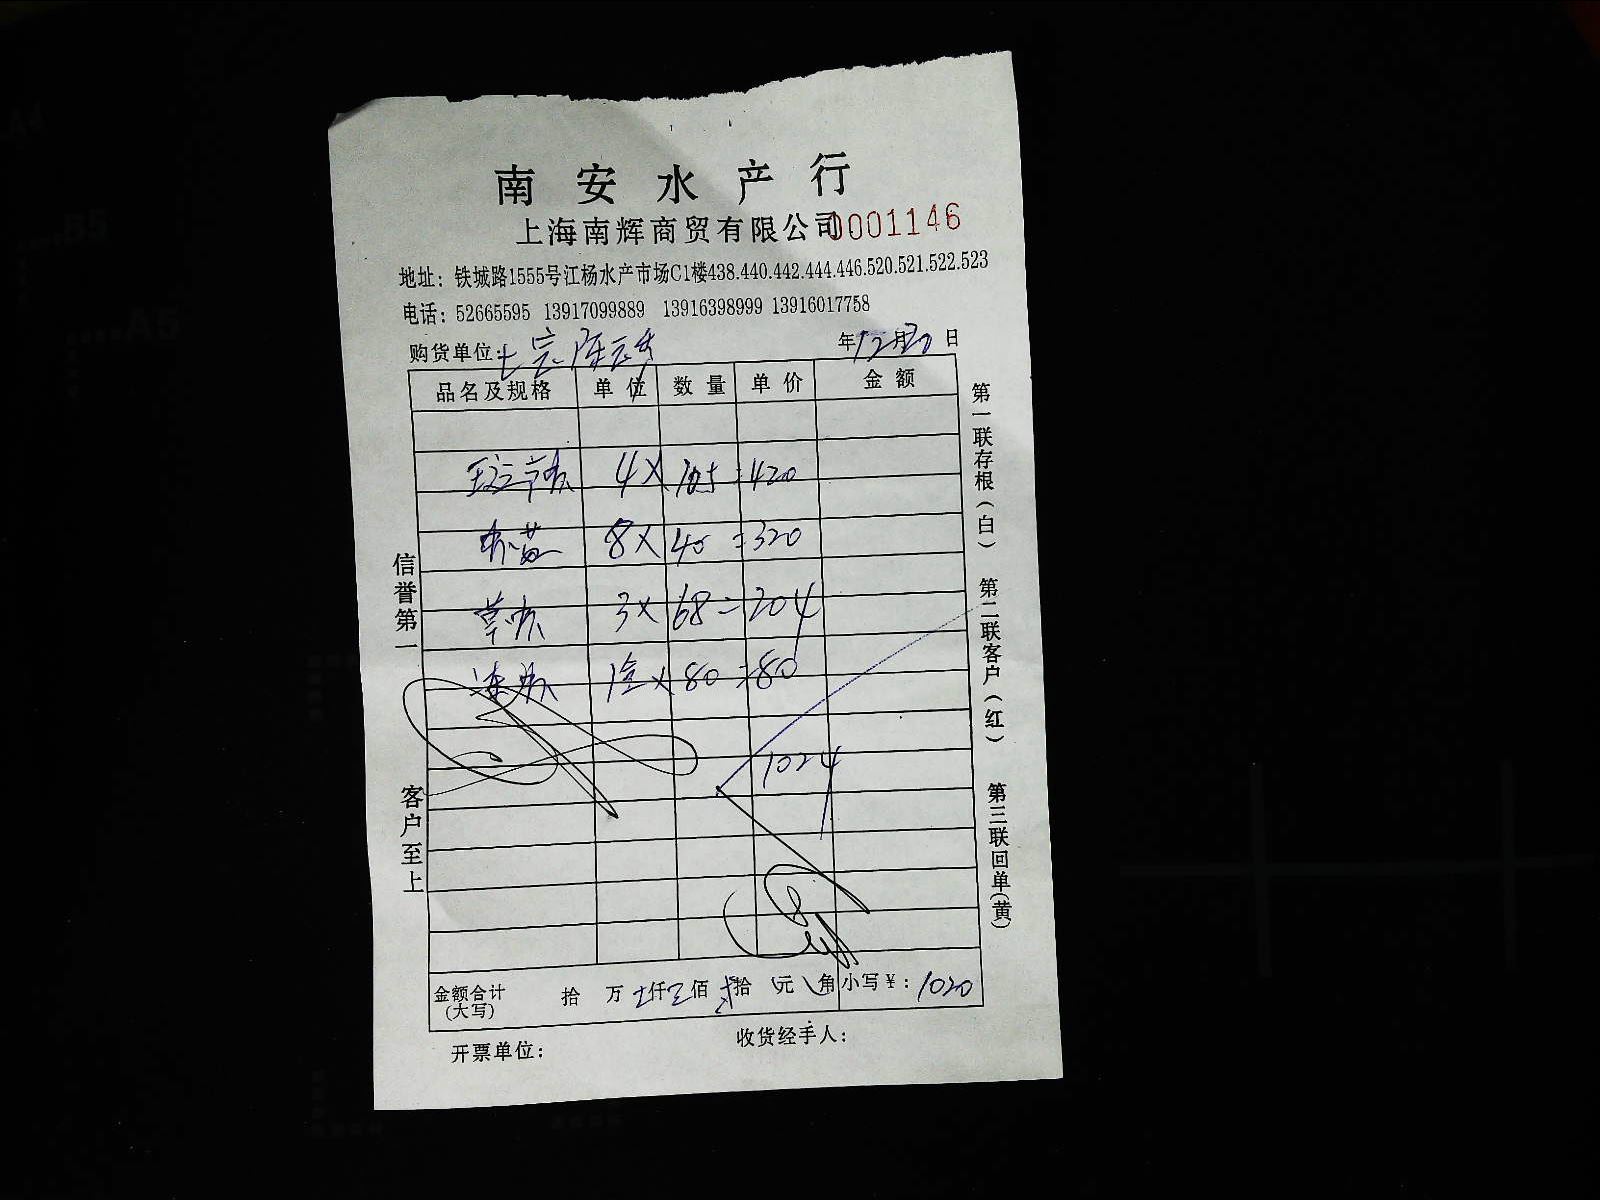 南安水产行
上海南辉商贸有限公司0001146
地址：铁城路1555号江杨水产市场C1楼438.440.442.444.446.520.521.522.523
电话：52665595 13917099889 13916398999 13916017758
购货单位：
年12月30日
品名及规格 单位 数量 单价 金额
4× 105=420
8× 40=320
3× 68=204
× 80=80
1024
金额合计 拾 万 仟 佰 拾 元 角 小写¥：1020
(大写)
开票单位：
收货经手人：
信誉第一
客户至上
第一联存根（白）
第二联客户（红）
第三联回单(黄)